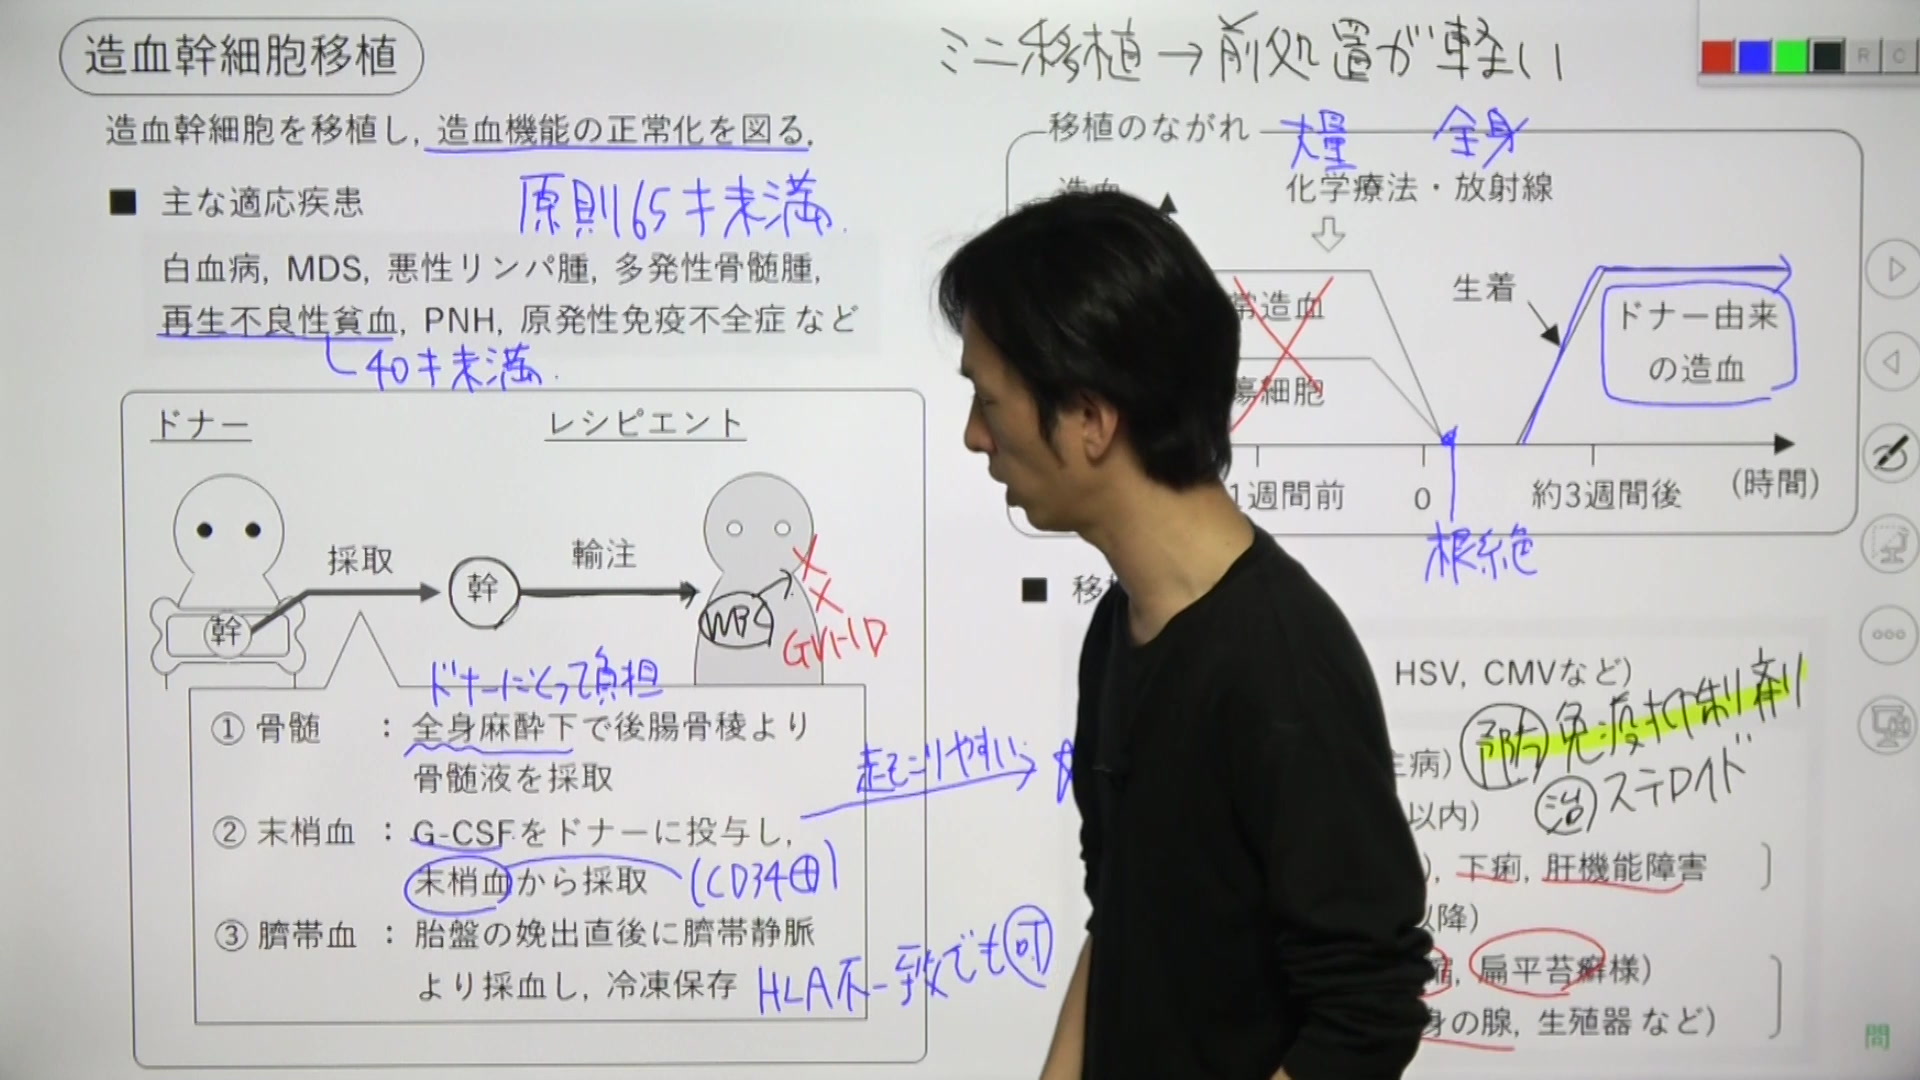 造血幹細胞移植
造血幹細胞を移植し, 造血機能の正常化を図る.
■ 主な適応疾患
原則65才未満.
白血病, MDS, 悪性リンパ腫, 多発性骨髄腫,
再生不良性貧血, PNH, 原発性免疫不全症 など
40才未満.
ドナー
レシピエント
採取
幹
輸注
幹
WBC
GVHD
ドナーにとって負担
① 骨髄 : 全身麻酔下で後腸骨稜より
骨髄液を採取
② 末梢血 : G-CSFをドナーに投与し,
末梢血から採取 (CD34⊕)
③ 臍帯血 : 胎盤の娩出直後に臍帯静脈
より採血し, 冷凍保存
HLA不一致でも可
起こりやすい
ミニ移植→前処置が軽い
移植のながれ
大量 全身
造血
化学療法・放射線
常造血
瘍細胞
生着
ドナー由来
の造血
1週間前
0
約3週間後
(時間)
根絶
■ 移
HSV, CMVなど)
予防 免疫抑制剤
主病)
治 ステロイド
以内)
), 下痢, 肝機能障害
以降)
縮, 扁平苔癬様)
身の腺, 生殖器 など)
R
C
問